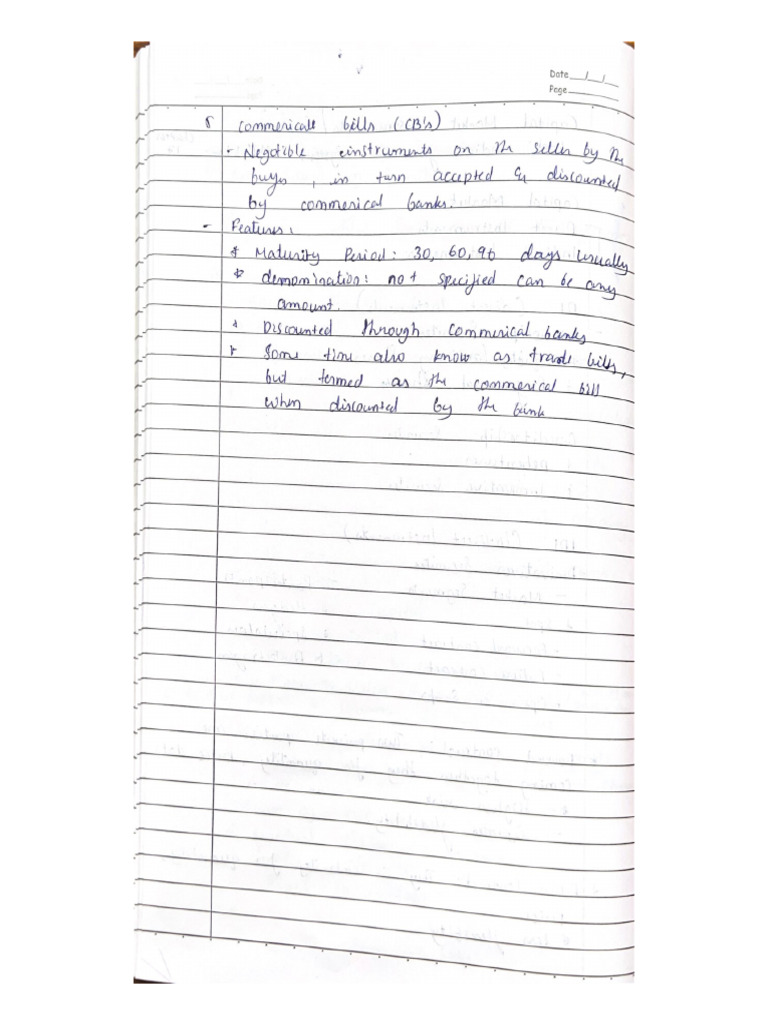 Date __/__/__
Page ______
8 Commericall bills (CB's)
- Negotible einstruments on the seller by the
buyer, in turn accepted & discounted
by commerical banks.
- Features:
* Maturity Period: 30, 60, 90 days usually
* demomination: not specified can be any
amount.
* Discounted through commerical banks
* Some time also know as trade bills,
but termed as the commerical bill
when discounted by the bank